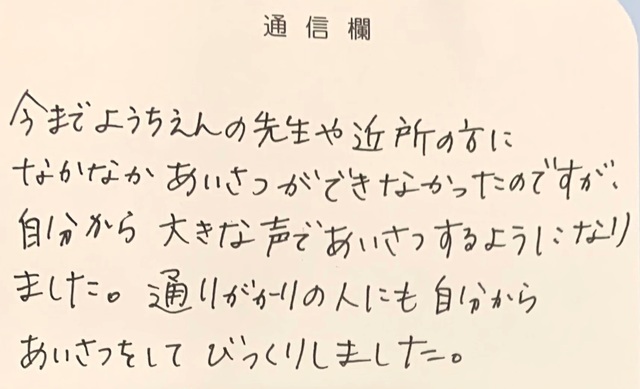 通信欄
今までようちえんの先生や近所の方に
なかなかあいさつができなかったのですが、
自分から大きな声であいさつするようになり
ました。通りがかりの人にも自分から
あいさつをしてびっくりしました。